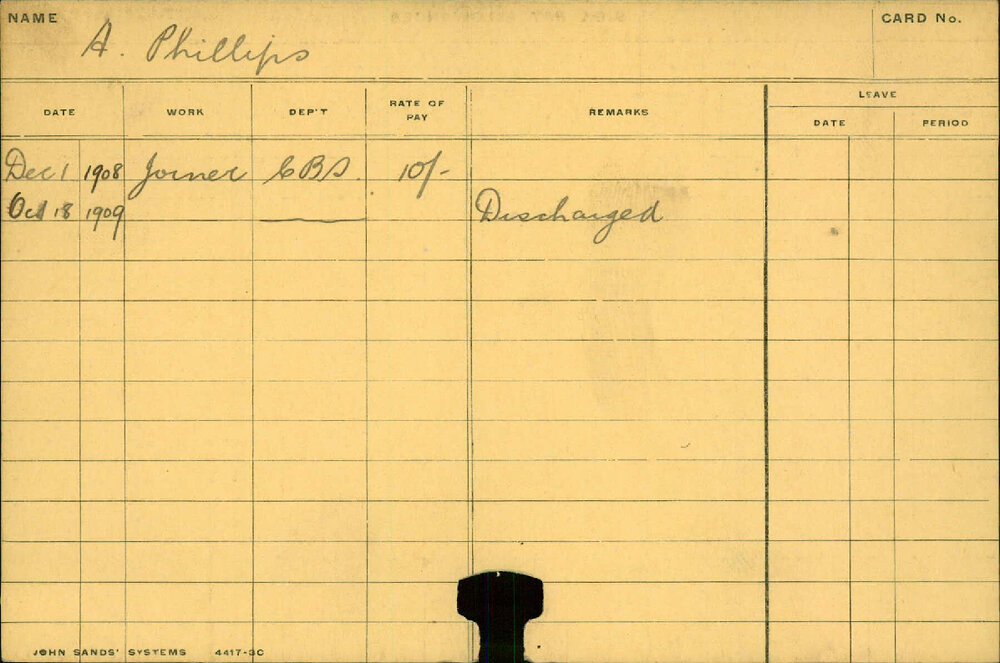 NAME A. Phillips CARD No.
DATE WORK DEP'T RATE OF PAY REMARKS LEAVE
DATE PERIOD
Dec 1 1908 Joiner C B S. 10/-
Oct 18 1909 Discharged
JOHN SANDS' SYSTEMS 4417-3C